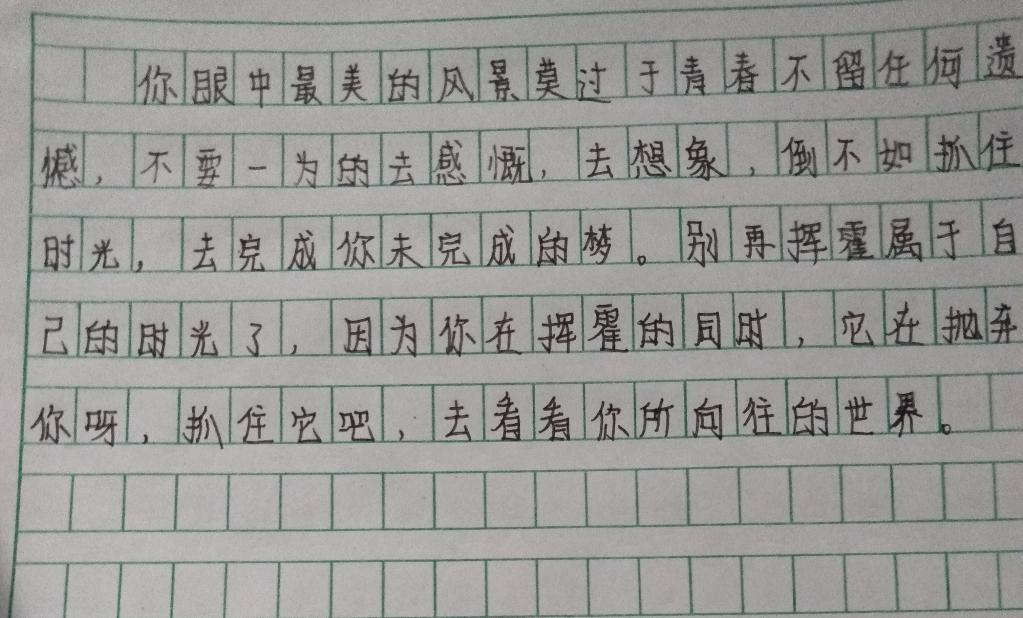 你眼中最美的风景莫过于青春不留任何遗
憾，不要一为的去感慨，去想象，倒不如抓住
时光，去完成你未完成的梦。别再挥霍属于自
己的时光了，因为你在挥霍的同时，它在抛弃
你呀，抓住它吧，去看看你所向往的世界。